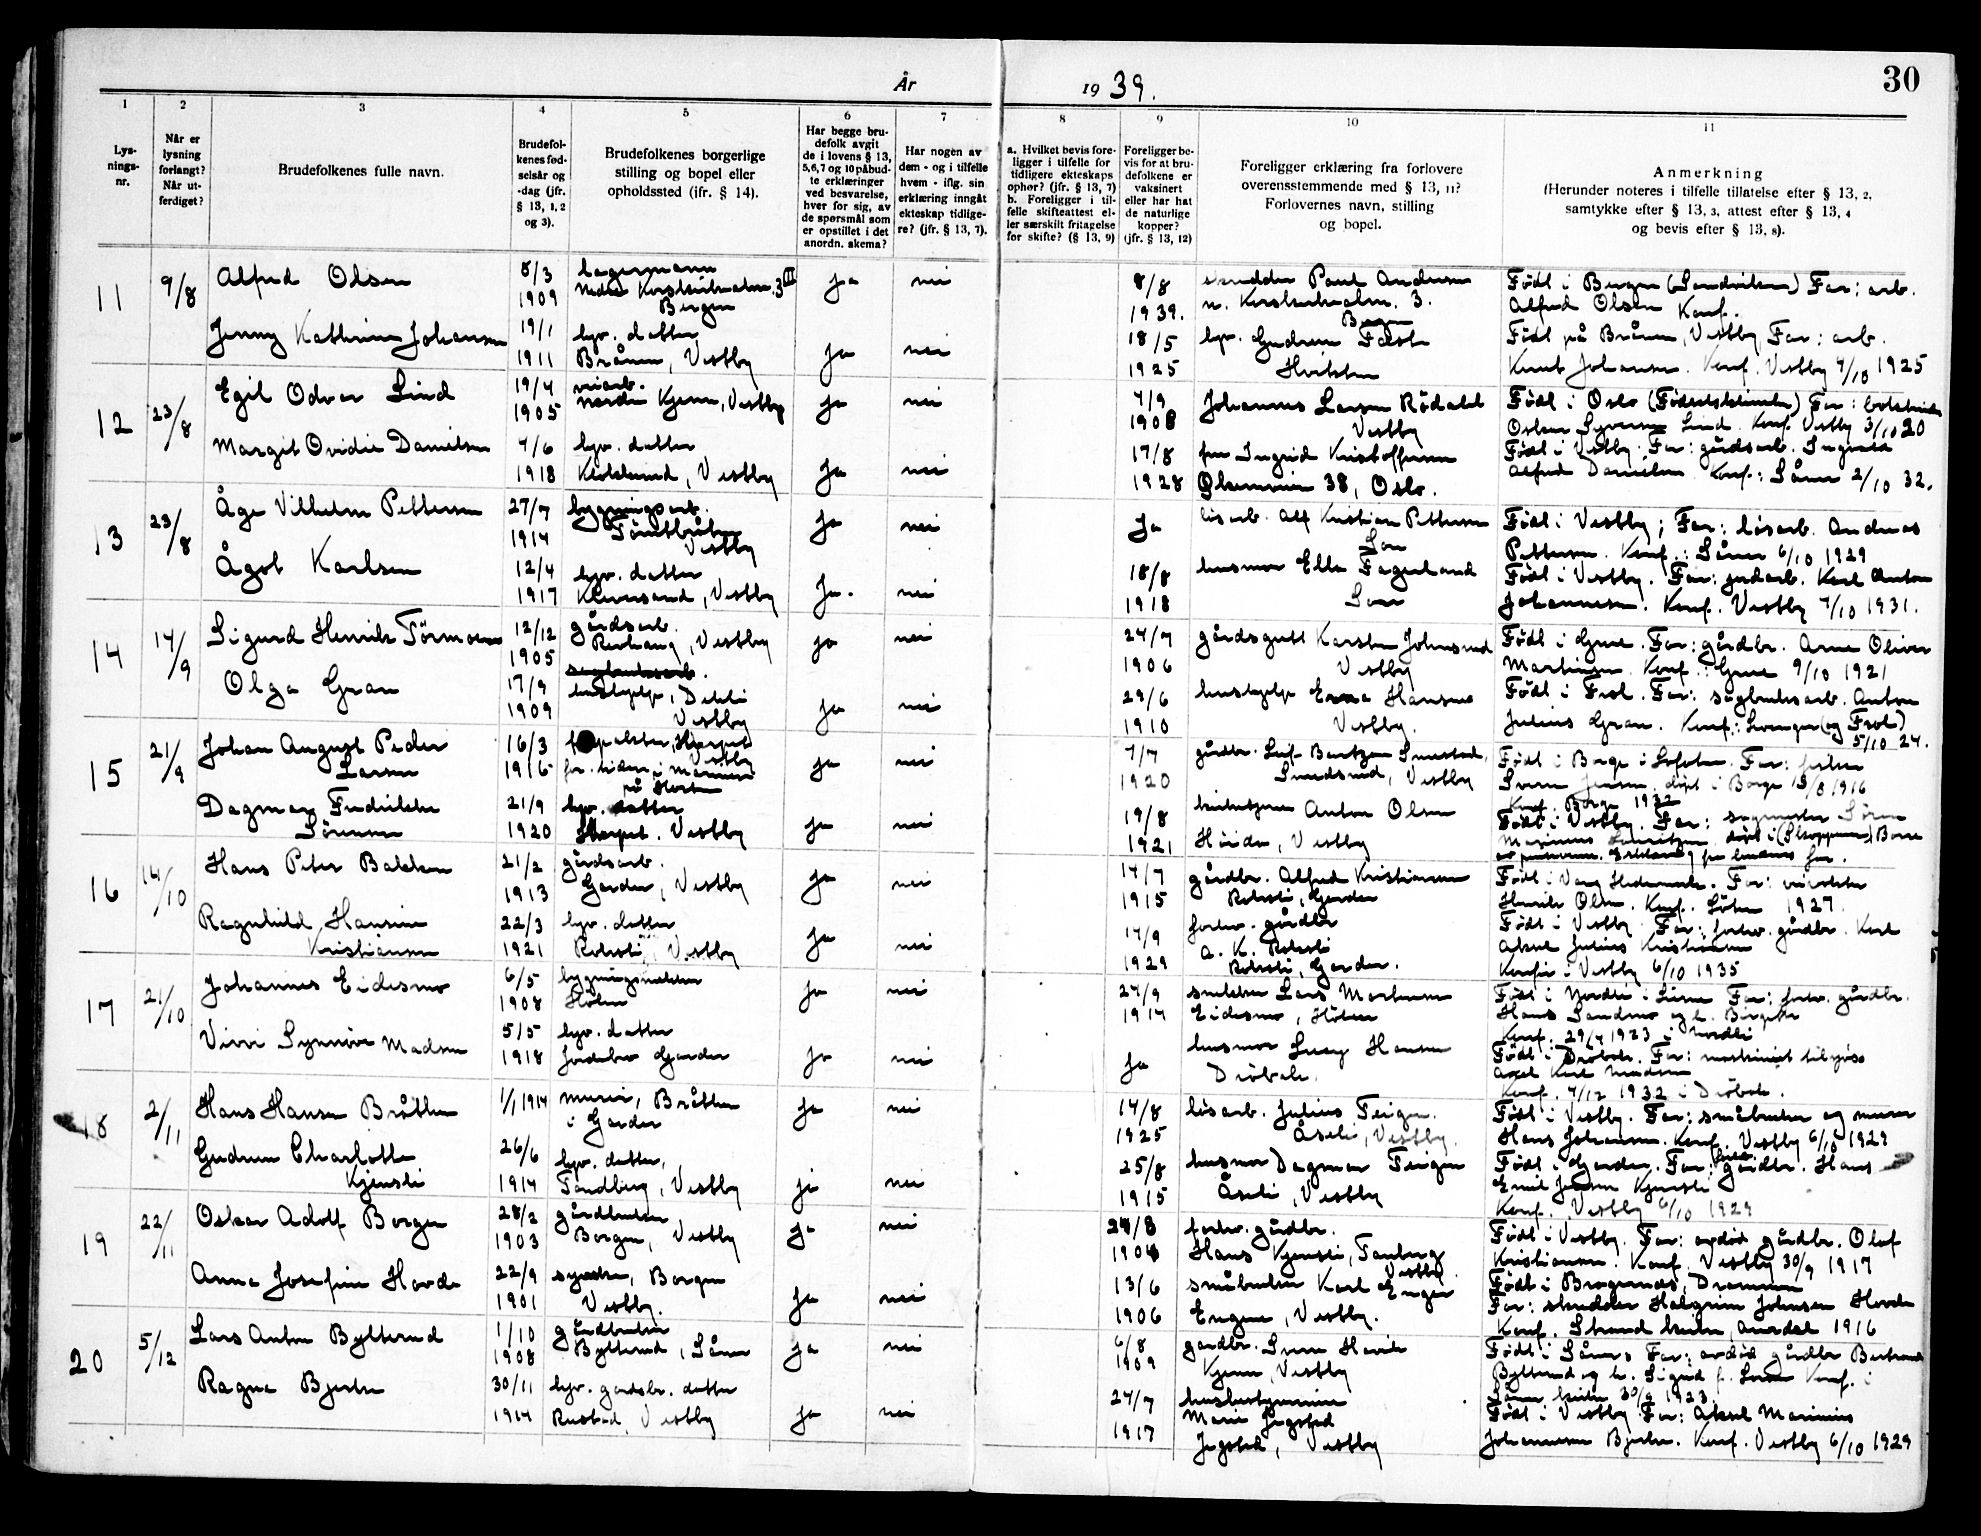 År 1939.
30
1
2
3
4
5
6
7
8
9
10
11
Lys-
nings-
nr.
Når er
lysning
forlangt?
Når ut-
ferdiget?
Brudefolkenes fulle navn.
Brudefol-
kenes fød-
selsår og
-dag (jfr.
§ 13, 1, 2
og 3).
Brudefolkenes borgerlige
stilling og bopel eller
opholdssted (ifr. § 14).
Har begge bru-
defolk avgit
de i lovens § 13,
5,6,7 og 10 påbud-
te erklæringer
ved besvarelse,
hver for sig, av
de spørsmål som
er opstillet i det
anordn. skema?
Har nogen av
dem - og i tilfelle
hvem - iflg. sin
erklæring inngåt
ekteskap tidlige-
re? (jfr. § 13, 7).
a. Hvilket bevis fore-
ligger i tilfelle for
tidligere ekteskaps
ophør? (jfr. § 13, 7)
b. Foreligger i til-
felle skifteattest el-
ler særskilt fritagelse
for skifte? (§ 13, 9)
Foreligger be-
vis for at bru-
defolkene er
vaksinert
eller har hat
de naturlige
kopper?
(jfr. § 13, 12)
Foreligger erklæring fra forlovere
overensstemmende med § 13, 11?
Forlovernes navn, stilling
og bopel.
Anmerkning
(Herunder noteres i tilfelle tillatelse efter § 13, 2,
samtykke efter § 13, 3, attest efter § 13, 4
og bevis efter § 13, 8).
11
9/8
Alfred Olsen
8/3
1909
lagermann
Bergen
ja
nei
8/8
1939.
Paul Andersen
3.
Bergen
Født i Bergen (Sandviken) Far: arb.
Alfred Olsen Konf.
Jenny Kathrine Johansen
19/1
1911
hjv. datter
Brånen, Vestby
ja
nei
18/5
1925
hjv. Gudrun
Hvitsten
Født på Brånen, Vestby Far: arb.
Knut Johansen. Konf. Vestby 4/10 1925
12
23/8
Egil Odvar Lind
19/4
1905
nordre Kjenn, Vestby
ja
nei
7/9
1908
Johannes Larsen Rødahl
Vestby
Født i Oslo (Fødselsstiftelsen) Far:
Oskar Lind. Konf. Vestby 3/10 20
Margit Ovidie Danielsen
7/6
1918
hjv. datter
Vestby
ja
nei
17/8
1928
fru Ingrid Kristoffersen
38, Oslo.
Født i Vestby. Far: gårdsarb. Ingvald
Alfred Danielsen. Konf.: Såner 2/10 32.
13
23/8
Åge Vilhelm Pettersen
27/7
1914
bygningsarb.
Vestby
ja
nei
ja
løsarb. Alf Kristian Pettersen
Son
Født i Vestby; Far: løsarb. Andreas
Pettersen. Konf.: Såner 6/10 1929
Ågot Karlsen
12/4
1917
hjv. datter
Vestby
Ja.
nei
18/8
1918
husmor Ella Fagerland
Son
Født i Vestby. Far: jordarb. Karl Anton
Johannesen. Konf. Vestby 4/10 1931.
14
14/9
Sigurd Henrik Tørmoen
12/12
1905
gårdsarb.
Vestby
ja
nei
24/7
1906
gårdsgutt Karsten Johnsrud
Vestby
Født i Grue. Far: gårdbr. Arne Oliver
Martinsen. Konf.: Grue 9/10 1921
Olga Gran
17/9
1909
hushjelp, Deli
Vestby
ja
nei
29/6
1910
hushjelp Erna Hansen
Vestby.
Født i Frol. Far: sagbruksarb. Anton
Julius Gran. Konf: Levanger (og Frol)
5/10 24.
15
21/9
Johan August Peder
Larsen
16/3
1916
Vestby
ja
nei
7/7
1920
gårdbr. Leif Berntzen Smestad,
Smedsrud, Vestby
Født i Borge i Lofoten. Far: fisker
Jensen. død i Borge 15/8 1916
Konf. Borge 1932
Dagmar Fredrikke
Sørensen
21/9
1920
hjv. datter
Vestby
ja
nei
19/8
1921
Anton Olsen
Vestby
Født i Vestby. Far: sagmester Søren
16
14/10
Hans Peter Bakken
21/2
1913
gårdsarb.
Garder, Vestby
ja
nei
14/7
1915
gårdbr. Alfred Kristiansen
Rolsti, Garder
Født i Vang Hedemark. Far:
Henrik Olsen. Konf. Løten 1927.
Ragnhild Hansine
Kristiansen
22/3
1921
hjv. datter
Rolsti, Vestby
ja
nei
14/9
1929
forhv. gårdbr
A. K. Rolsti
Rolsti, Garder.
Født i Vestby. Far: forhv. gårdbr. Karl
Aksel Julius Kristiansen
Konfir i Vestby 6/10 1935
17
21/10
Johannes Eidesmo
6/5
1908
Hölen
ja
nei
24/9
1914
snekker Lars Martinsen
Eidesmo, Hölen
Født i Nordli i Lierne Far: forhv. gårdbr.
Hans Sandmo og h. Birgitte
Konf. 29/4 1923 i Nordli
Vivi Synnøve Madsen
5/5
1918
hjv. datter
Garder
ja
nei
ja
husmor Lucy Hansen
Drøbak.
Født i Drøbak. Far: maskinist tilsjøss
Axel Karl Madsen
Konf. 4/12 1932 i Drøbak.
18
2/11
Hans Hansen Bråtten
1/1 1914
murer, Bråtten
i Garder
ja
nei
14/8
1925
løsarb. Julius Teigen.
Åseli, Vestby.
Født i Vestby. Far: småbruker og murer
Hans Johansen. Konf. Vestby 6/10 1929
Gudrun Charlotte
Kjensli
26/6
1914
hjv. datter,
Tandberg, Vestby
ja
nei
25/8
1915
husmor Dagmar Teigen
Åseli, Vestby
Født i Garder. Far: gårdbr. Hans
Emil Jensen Kjensli
Konf. Vestby 6/10 1929
19
22/11
Oskar Adolf Borgen
28/2
1903
gårdbruker
Borgen, Vestby
ja
nei
24/8
1904
forhv. gårdbr.
Hans Kjensli, Tanberg
Vestby
Født i Vestby. Far: avdød gårdbr. Olaf
Kristiansen. Konf. Vestby 30/9 1917
Anna Josefine Hovde
22/9
1901
Borgen
Vestby.
ja
nei
13/6
1906
småbruker Karl Enger
Engene, Vestby.
Født i Bragernes, Drammen
Far: skredder Halgrim Johnsen Hovde
Konf. Strand kirke, Aurdal 1916
20
5/12
Lars Anton Bylterud
1/10
1908
gårdbruker
Bylterud, Såner
ja
nei
6/8
1909
gårdbr. Sven Harik
Kjenn, Vestby
Født i Såner. Far: avdød gårdbr
Bylterud og h. Sigrid f. Larsen Konf. i
Såner kirke 30/9 1923
Ragna Bjerke
30/11
1914
hjv. gårdsbr. datter
Rustad, Vestby
ja
nei
24/7
1917
husbestyrerinne
Marie Jegstad
Jegstad, Vestby
Født i Vestby Far: Aksel Marinius
Johannesen Bjerke. Konf. Vestby 6/10 1929